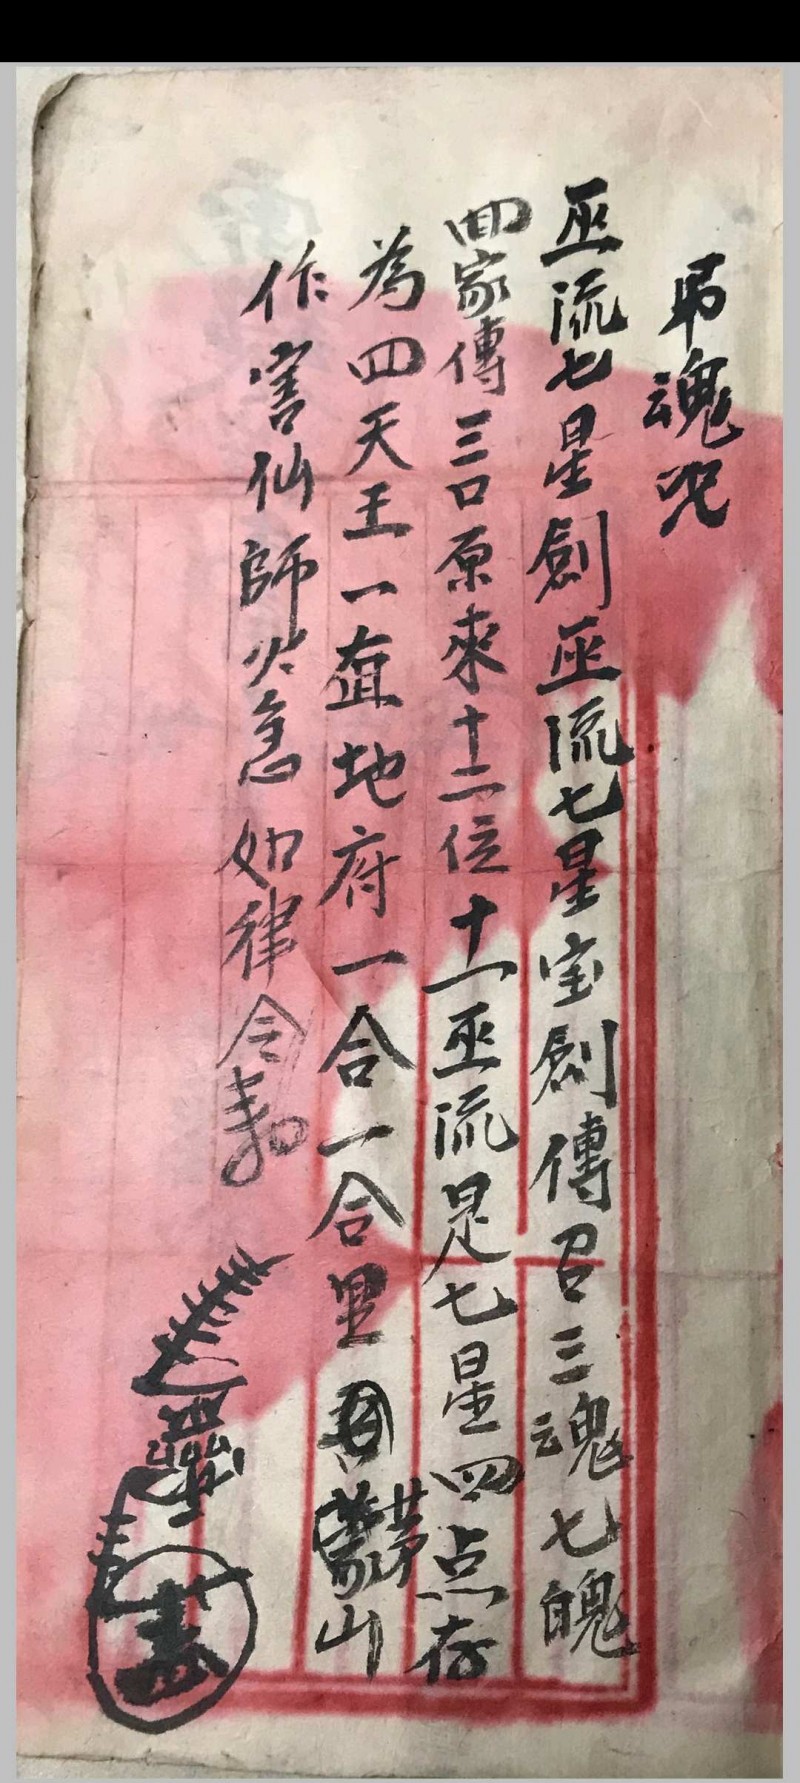 吊魂咒
巫流七星劍巫流七星宝劍傳召三魂七魄
四家傳三口原來十二位十一巫流是七星四点存
為四天王一直地府一合一合里茅山
作害仙師火急如律令